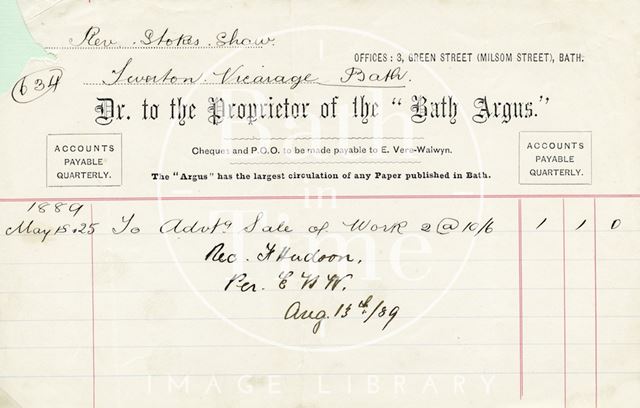 Rev. Stokes Shaw.
OFFICES: 3, GREEN STREET (MILSOM STREET), BATH.
634
Twerton Vicarage Bath.
Dr. to the Proprietor of the "Bath Argus."
ACCOUNTS PAYABLE QUARTERLY.
Cheques and P.O.O. to be made payable to E. Vere-Walwyn.
ACCOUNTS PAYABLE QUARTERLY.
The "Argus" has the largest circulation of any Paper published in Bath.
1889
May 18.25 To Advtg Sale of Work 2 @ 10/6 1 1 0
Rec. F Hudson,
Per. E V W.
Aug. 13th/89
Bath
in
Time
IMAGE LIBRARY